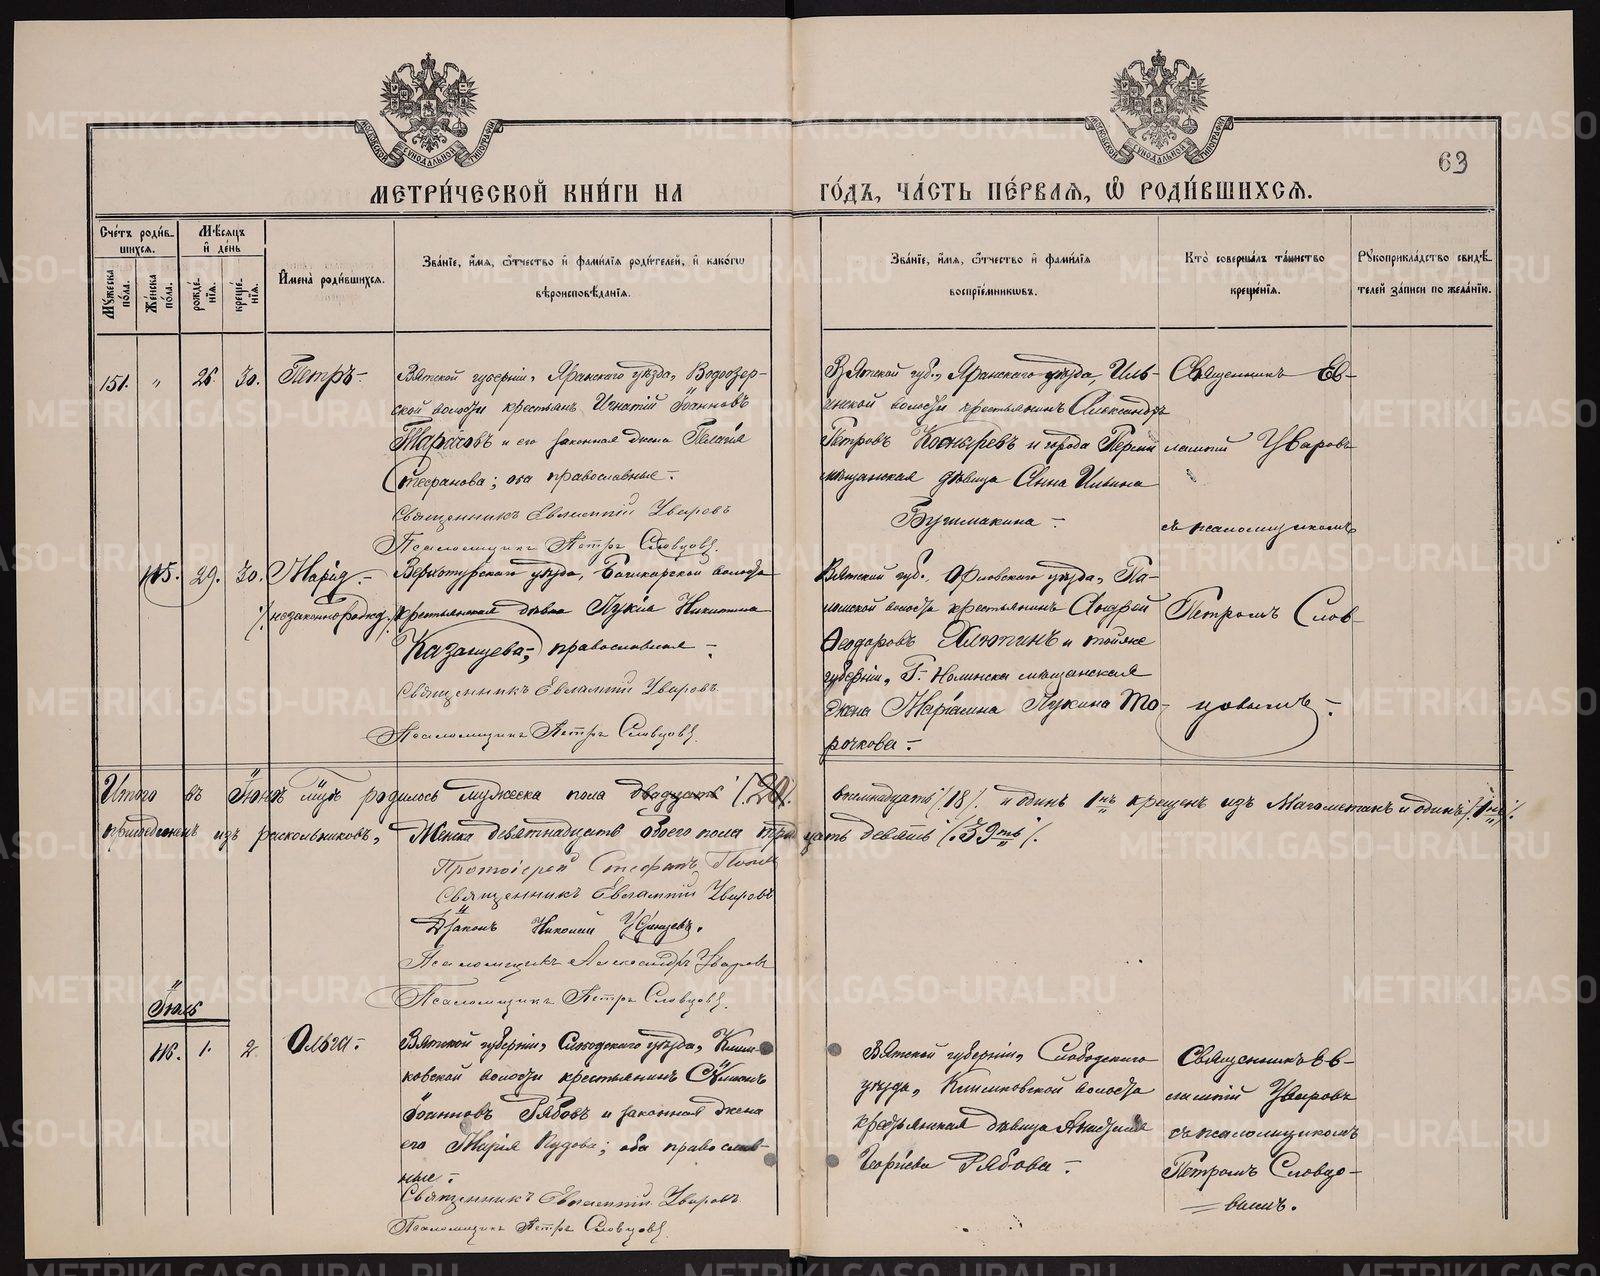 63
МЕТРИ́ЧЕСКОЙ КНИ́ГИ НА ГО́ДЪ, ЧА́СТЬ ПЕ́РВАЯ, Ѡ РОДИ́ВШИХСЯ.
МОСКОВСКОЙ СѴНОДАЛЬНОЙ ТИПОГРАФІИ
МОСКОВСКОЙ СѴНОДАЛЬНОЙ ТИПОГРАФІИ
Сче́тъ роди́в-
шихся.
Му́жеска
по́ла.
Же́нска
по́ла.
Мѣ́сяцъ
и҆ де́нь
рожде́-
нїѧ.
креще́-
нїѧ.
И҆мена̀ роди́вшихсѧ.
Зва́нїе, и҆́мѧ, ѻ҆́тчество и҆ фами́лїѧ роди́телей, и҆ како́гѡ
вѣроисповѣ́данїѧ.
Зва́нїе, и҆́мѧ, ѻ҆́тчество и҆ фами́лїѧ
воспрїе́мникѡвъ.
Кто̀ соверша́лъ та́инство
креще́нїѧ.
Рꙋкоприкла́дство свидѣ́-
телей за́писи по жела́нїю.
151. " 26. 30. Петръ.-
Вятской губерніи, Яранскаго уѣзда, Водоозер-
ской волости крестьян Игнатій Іоанновъ
Тарасовъ и его законная жена Пелагія
Стефанова; оба православные.-
Священникъ Евлампій Уваровъ
Псаломщикъ Петръ Словцовъ.
Вятской губ., Яранскаго уѣзда, Иль-
инской волости крестьянинъ Александръ
Петровъ и города Перми
мѣщанская дѣвица Анна Ильина
Бушмакина.-
Священникъ Ев-
лампій Уваровъ
съ псаломщикомъ
115. 29. 30. Марія.-
/незаконнорожд./
Верхотурскаго уѣзда, волости
крестьянская дѣвка Лукія Никитина
Казанцева, православная.-
Священникъ Евлампій Уваровъ.
Псаломщикъ Петръ Словцовъ.
Вятской губ. Орловскаго уѣзда,
волости крестьянинъ Андрей
Ѳеодоровъ и тойже
губерніи, Г. Нолинска мѣщанская
жена Маріамна Лукина То-
рочкова.-
Петромъ Слов-
цовымъ.-
Итого въ Іюнѣ мц҃ѣ родилось мужеска пола двадцать /20/. восемнадцать /18/. и одинъ 1нъ крещенъ изъ Магометанъ и одинъ /1нъ/.
присоединенъ изъ раскольниковъ, Женска девятнадцать обоего пола тридцать девять /39ть/.
Протоіерей Стефанъ
Священникъ Евлампій Уваровъ
Діаконъ Николай
Псаломщикъ Александръ Уваровъ
Псаломщикъ Петръ Словцовъ.
Іюль
116. 1. 2. Ольга.-
Вятской губерніи, Слободскаго уѣзда, Клим-
ковской волости крестьянинъ Сѵмеонъ
Іоанновъ Рябовъ и законная жена
его Марія; оба православ-
ные.-
Священникъ Евлампій Уваровъ.
Псаломщикъ Петръ Словцовъ.
Вятской губерніи, Слободскаго
уѣзда, Климковской волости
крестьянская дѣвица
Георгіева Рябова.-
Священникъ Ев-
лампій Уваровъ
съ псаломщикомъ
Петромъ Словцо-
вымъ.
METRIKI.GASO-URAL.RU